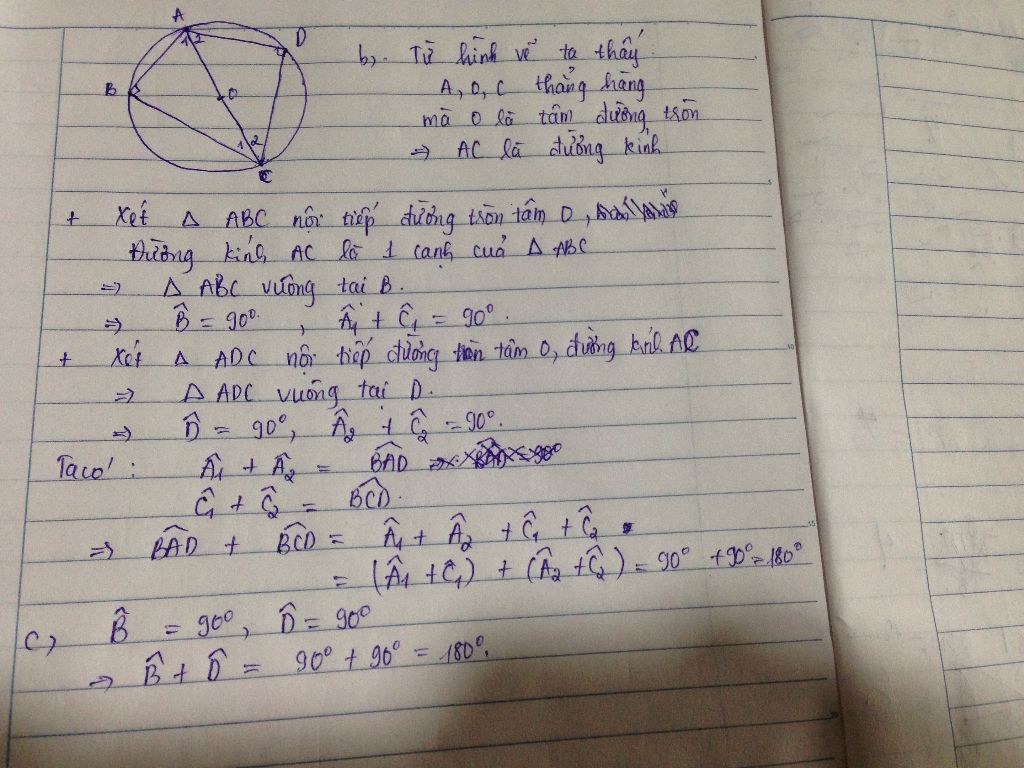 A
1 2
D
B
O
1 2
C
b, Từ hình vẽ ta thấy
A, O, C thẳng hàng
mà O là tâm đường tròn
⇒ AC là đường kính
+ Xét Δ ABC nội tiếp đường tròn tâm O,
Đường kính AC là 1 cạnh của Δ ABC
⇒ Δ ABC vuông tại B.
⇒ B̂ = 90°, Â₁ + Ĉ₁ = 90°.
+ Xét Δ ADC nội tiếp đường tròn tâm O, đường kính AC
⇒ Δ ADC vuông tại D.
⇒ D̂ = 90°, Â₂ + Ĉ₂ = 90°.
Ta có: Â₁ + Â₂ = B̂AD
Ĉ₁ + Ĉ₂ = B̂CD.
⇒ B̂AD + B̂CD = Â₁ + Â₂ + Ĉ₁ + Ĉ₂
= (Â₁ + Ĉ₁) + (Â₂ + Ĉ₂) = 90° + 90° = 180°
c, B̂ = 90°, D̂ = 90°
⇒ B̂ + D̂ = 90° + 90° = 180°.